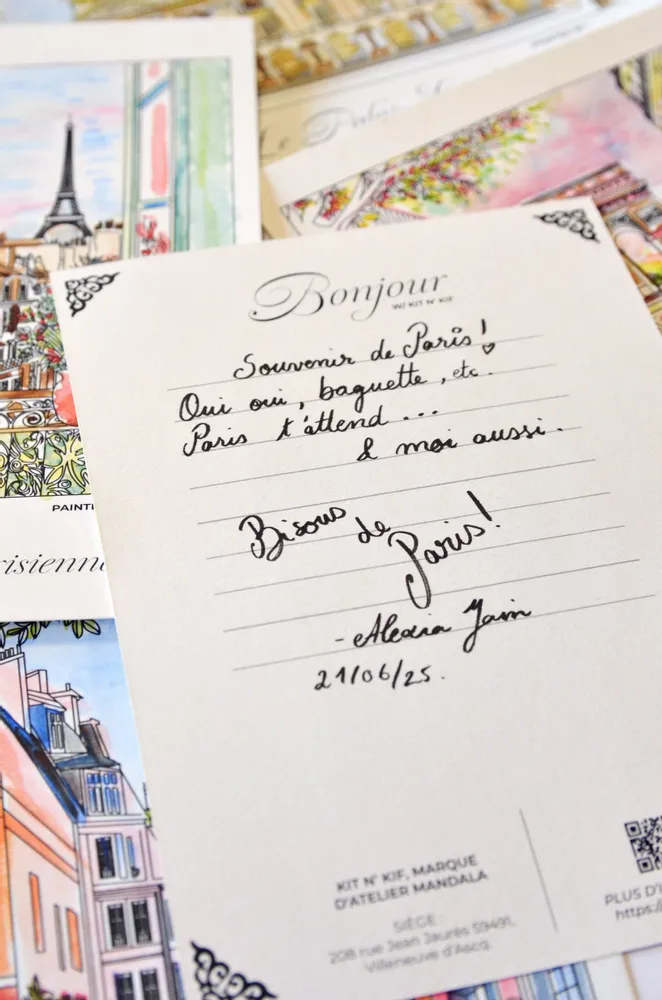 Bonjour
W/ KIT N' KIF
Souvenir de Paris!
Oui oui, baguette, etc.
Paris t'attend ...
& moi aussi.
Bisous
de
Paris!
- Alexia Jain
21/06/25.
PAINTI
risienne
KIT N' KIF, MARQUE
D'ATELIER MANDALA
SIÈGE :
208 rue Jean Jaurès 59491,
Villeneuve d'Ascq.
PLUS D'I
https:/